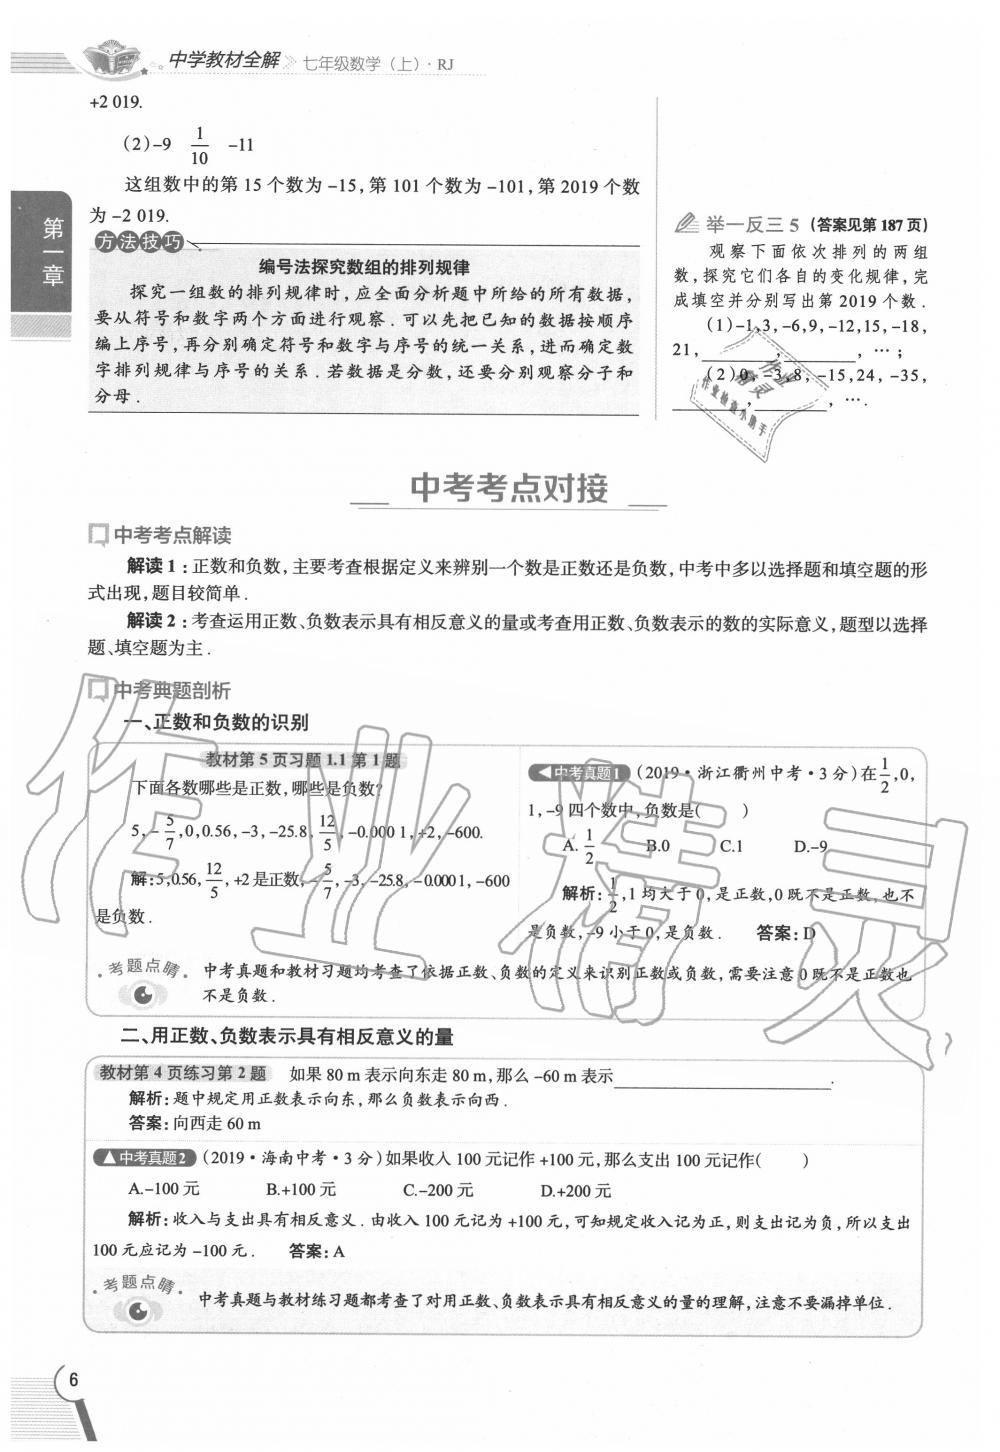 中学教材全解 七年级数学(上)·RJ
+2 019.
(2)-9 1/10 -11
这组数中的第 15 个数为 -15,第 101 个数为 -101,第 2019 个数
为 -2 019.
方法技巧
编号法探究数组的排列规律
探究一组数的排列规律时,应全面分析题中所给的所有数据,
要从符号和数字两个方面进行观察.可以先把已知的数据按顺序
编上序号,再分别确定符号和数字与序号的统一关系,进而确定数
字排列规律与序号的关系.若数据是分数,还要分别观察分子和
分母.
第一章
举一反三 5 (答案见第 187 页)
观察下面依次排列的两组
数,探究它们各自的变化规律,完
成填空并分别写出第 2019 个数.
(1)-1,3,-6,9,-12,15,-18,
21,________,________,…;
(2)0,-3,8,-15,24,-35,
________,________,….
作业检查小助手
中考考点对接
中考考点解读
解读 1:正数和负数,主要考查根据定义来辨别一个数是正数还是负数,中考中多以选择题和填空题的形
式出现,题目较简单.
解读 2:考查运用正数、负数表示具有相反意义的量或考查用正数、负数表示的数的实际意义,题型以选择
题、填空题为主.
中考典题剖析
一、正数和负数的识别
教材第 5 页习题 1.1 第 1 题
下面各数哪些是正数,哪些是负数?
5,-5/7,0,0.56,-3,-25.8,12/5,-0.000 1,+2,-600.
解:5,0.56,12/5,+2是正数,-5/7,-3,-25.8,-0.000 1,-600
是负数.
中考真题1 (2019·浙江衢州中考·3 分)在1/2,0,
1,-9 四个数中,负数是(  )
A.1/2 B.0 C.1 D.-9
解析:1/2,1 均大于 0,是正数,0 既不是正数,也不
是负数,-9 小于 0,是负数. 答案:D
考题点睛 中考真题和教材习题均考查了依据正数、负数的定义来识别正数或负数,需要注意 0 既不是正数也
不是负数.
二、用正数、负数表示具有相反意义的量
教材第 4 页练习第 2 题 如果 80 m 表示向东走 80 m,那么 -60 m 表示________.
解析:题中规定用正数表示向东,那么负数表示向西.
答案:向西走 60 m
中考真题2 (2019·海南中考·3 分)如果收入 100 元记作 +100 元,那么支出 100 元记作(  )
A.-100 元 B.+100 元 C.-200 元 D.+200 元
解析:收入与支出具有相反意义.由收入 100 元记为 +100 元,可知规定收入记为正,则支出记为负,所以支出
100 元应记为 -100 元. 答案:A
考题点睛 中考真题与教材练习题都考查了对用正数、负数表示具有相反意义的量的理解,注意不要漏掉单位.
作业精灵
6